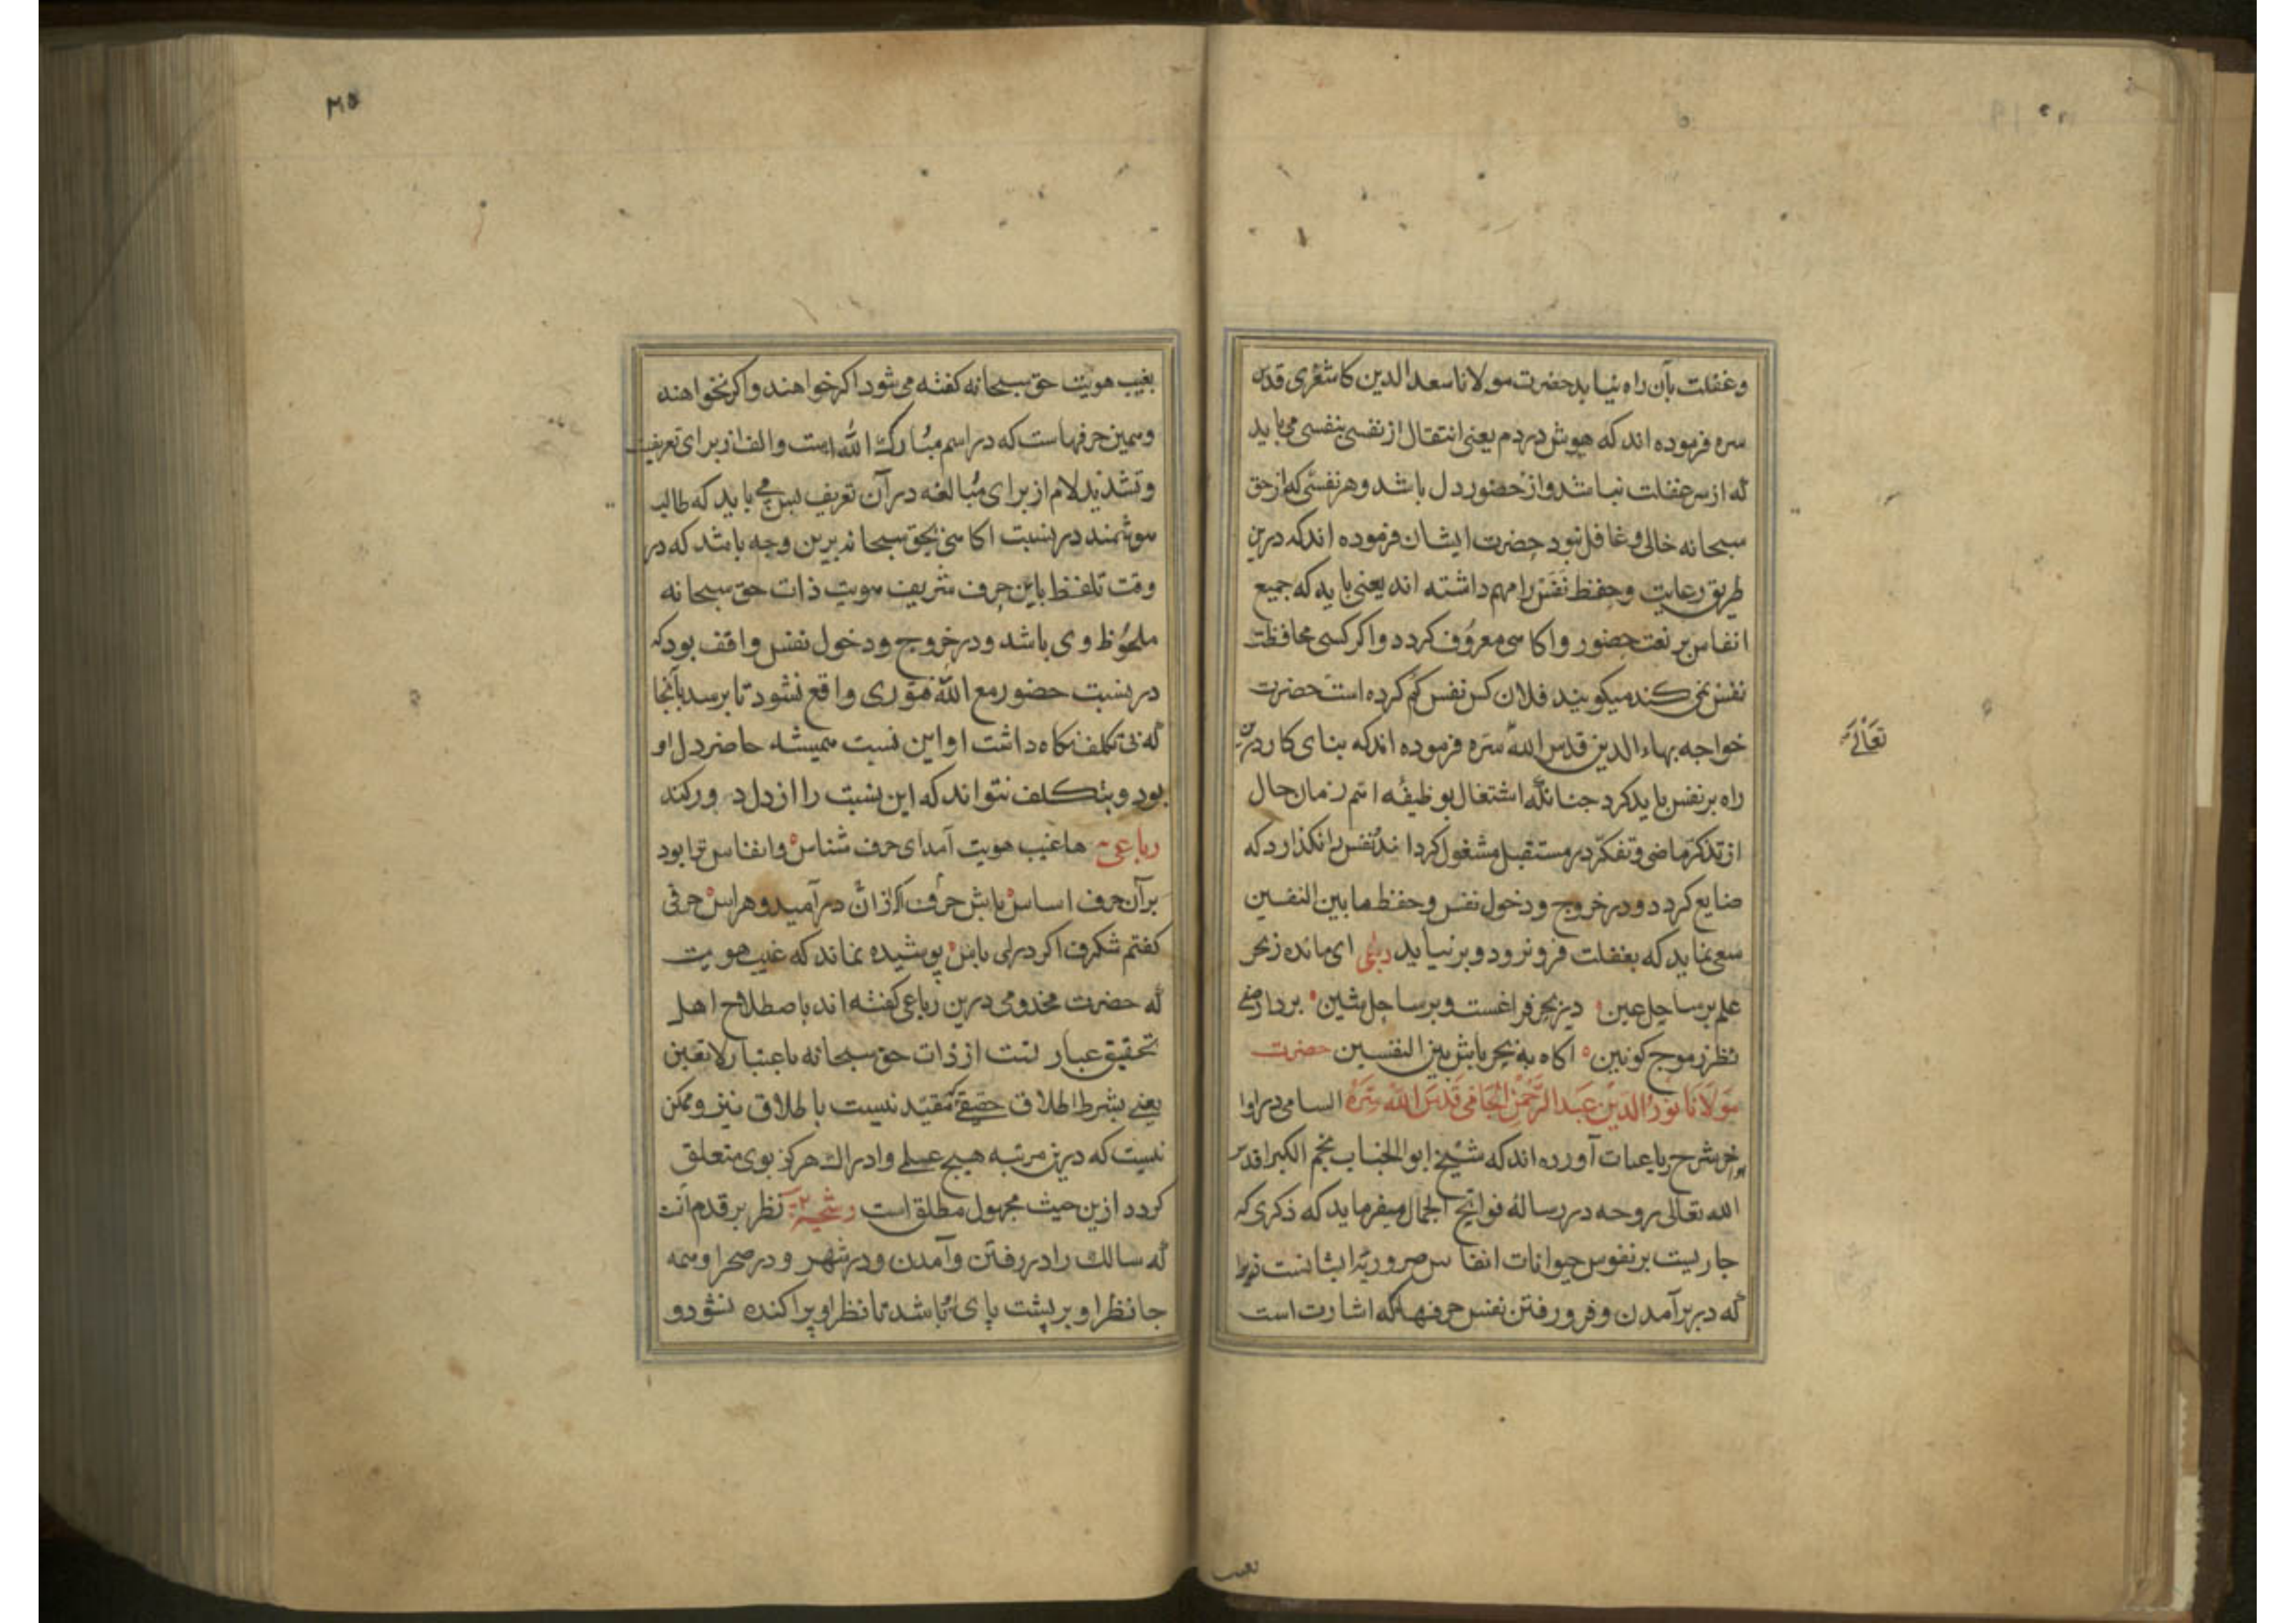 و غفلت بآن راه نیابد حضرت مولانا سعد الدین کاشغری قدس
سره فرموده اند که هوش در دم یعنی انتقال از نفسی بنفسی می باید
که از سر غفلت نباشد و از حضور دل باشد و هر نفسی که از حق
سبحانه خالی و غافل نبود حضرت ایشان فرموده اند که درین
طریق رعایت و حفظ نَفَس را مهم داشته اند یعنی باید که جمیع
انفاس بر نعت حضور و اکاهی معروف کردد و اکر کسی محافظت
نفس نمی کند میکویند فلان کس نفس کم کرده است حضرت
خواجه بهاء الدین قدس الله سره فرموده اند که بنای کار درین
تعالی
راه بر نفس باید کرد جنانکه اشتغال بوظیفه اتم زمان حال
از تذکر ماضی و تفکر در مستقبل مشغول کرداند و نفس را نکذارد که
ضایع کردد و در خروج و دخول نفس و حفظ ما بین النفسین
سعی نماید که بغفلت فرو نرود و بر نیاید ای مانده ز بحر
علم بر ساحل عین در بحر فراغست و بر ساحل شین بردار صفی
نظر ز موج کونین اکاه به بحر باش بین النفسین حضرت
مولانا نور الدین عبد الرحمن الجامی قدس الله سره السامی در اوا
خر شرح رباعیات آورده اند که شیخ ابو الجناب نجم الکبرا قدس
الله تعالی روحه در رسالهٔ فواتح الجمال میفرماید که ذکری که
جاریست بر نفوس حیوانات انفاس ضروریهٔ ایشانست
که در بر آمدن و فرو رفتن نفس حرف ها که اشارت است
بغیب
۲۱۵
بغیب هویت حق سبحانه کفته می شود اکر خواهند و اکر نخواهند
و همین حرف هاست که در اسم مبارک الله است و الف از برای تعریف
و تشدید لام از برای مبالغه در آن تعریف پس می باید که طالب
هوشمند در نسبت اکاهی بحق سبحانه برین وجه باشد که در
وقت تلفظ باین حرف شریف هویت ذات حق سبحانه
ملحوظ وی باشد و در خروج و دخول نفس واقف بود که
در نسبت حضور مع الله فتوری واقع نشود تا برسد بآنجا
که بی تکلف نکاه داشت او این نسبت همیشه حاضر دل او
بود و بتکلف نتواند که این نسبت را از دل دور کند
رباعی ها غیب هویت آمد ای حرف شناس و انفاس ترا بود
بر آن حرف اساس باش از آن در امید و هراس حرفی
کفتم شکرف اکر داری پاس پوشیده نماند که غیب هویت
که حضرت مخدومی درین رباعی کفته اند باصطلاح اهل
تحقیق عبارتست از ذات حق سبحانه باعتبار لا تعین
یعنی بشرط اطلاق حقیقی که مقید نیست باطلاق نیز و ممکن
نیست که درین مرتبه هیچ علمی و ادراک هرکز بوی متعلق
کردد ازین حیث مجهول مطلق است رشحه نظر بر قدم آنست
که سالک را در رفتن و آمدن و در شهر و در صحرا و همه
جا نظر او بر پشت پای باشد تا نظر او پراکنده نشود و